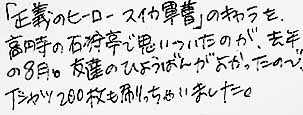 「正義のヒーロー スイカ軍曹」のキャラを、
高円寺の石狩亭で思いついたのが、去年
の8月。友達のひょうばんがよかったので、
Tシャツ200枚も刷っちゃいました。